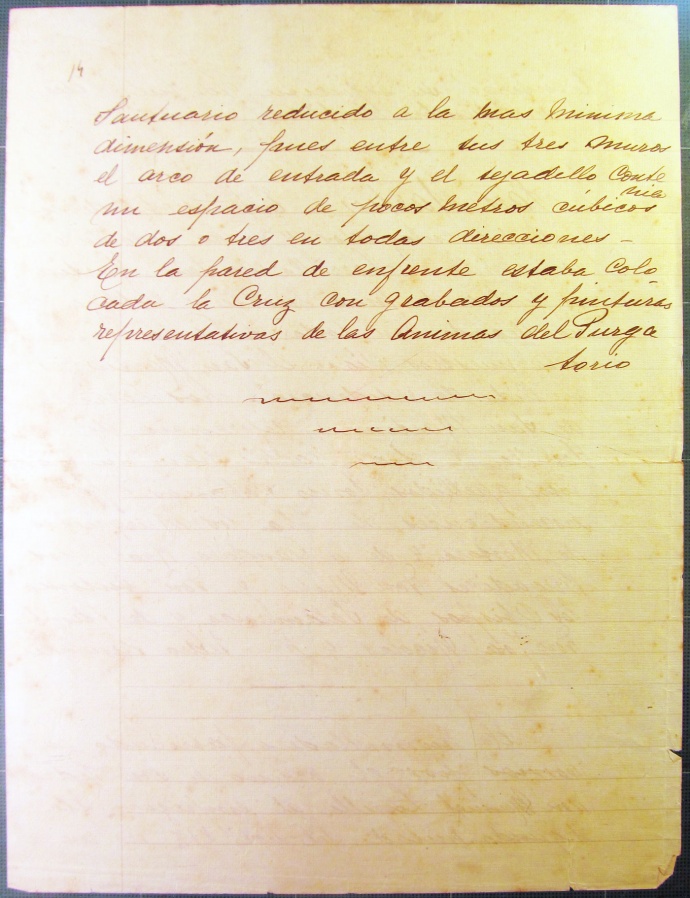 14
Santuario reducido a la mas minima
dimensión, pues entre sus tres muros
el arco de entrada y el tejadillo conte
nia
un espacio de pocos metros cúbicos
de dos o tres en todas direcciones –
En la pared de enfrente estaba colo
cada la Cruz con grabados y pinturas
representativas de las Animas del Purga
torio